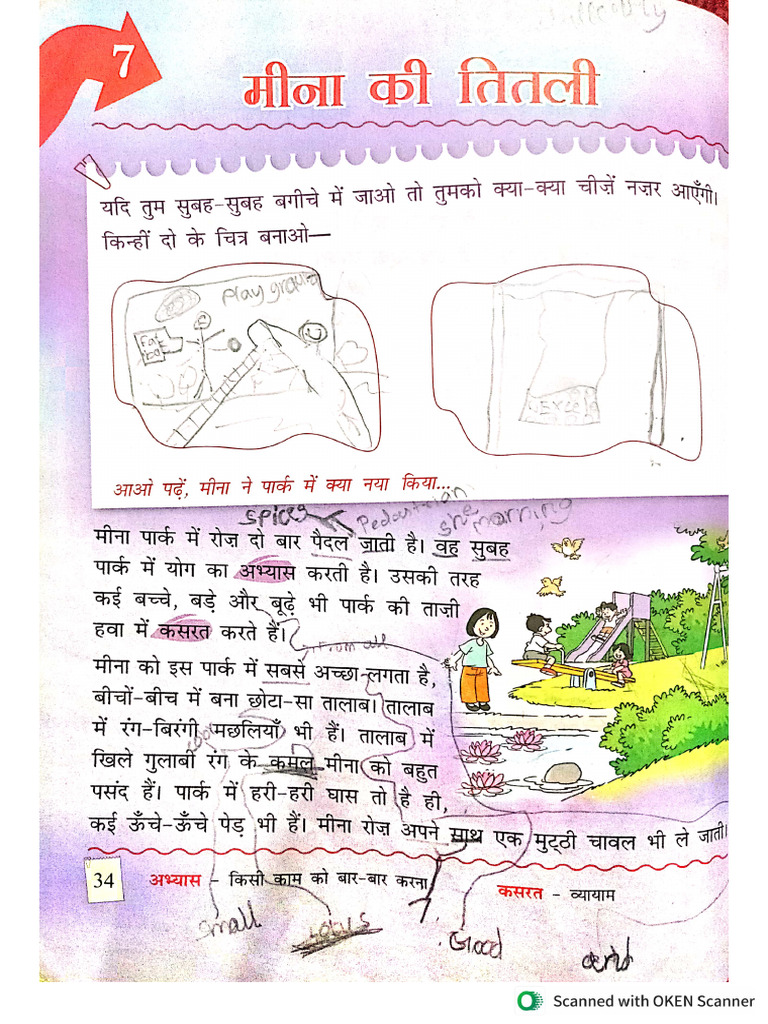 butterfly
7
मीना की तितली
यदि तुम सुबह-सुबह बगीचे में जाओ तो तुमको क्या-क्या चीज़ें नज़र आएँगी।
किन्हीं दो के चित्र बनाओ—
Play ground
आओ पढ़ें, मीना ने पार्क में क्या नया किया...
spices
she morning
मीना पार्क में रोज़ दो बार पैदल जाती है। वह सुबह
पार्क में योग का अभ्यास करती है। उसकी तरह
कई बच्चे, बड़े और बूढ़े भी पार्क की ताज़ी
हवा में कसरत करते हैं।
From all
मीना को इस पार्क में सबसे अच्छा लगता है,
बीचों-बीच में बना छोटा-सा तालाब। तालाब
में रंग-बिरंगी मछलियाँ भी हैं। तालाब में
खिले गुलाबी रंग के कमल मीना को बहुत
पसंद हैं। पार्क में हरी-हरी घास तो है ही,
कई ऊँचे-ऊँचे पेड़ भी हैं। मीना रोज़ अपने साथ एक मुट्ठी चावल भी ले जाती।
34 अभ्यास - किसी काम को बार-बार करना कसरत - व्यायाम
small
Good
Scanned with OKEN Scanner